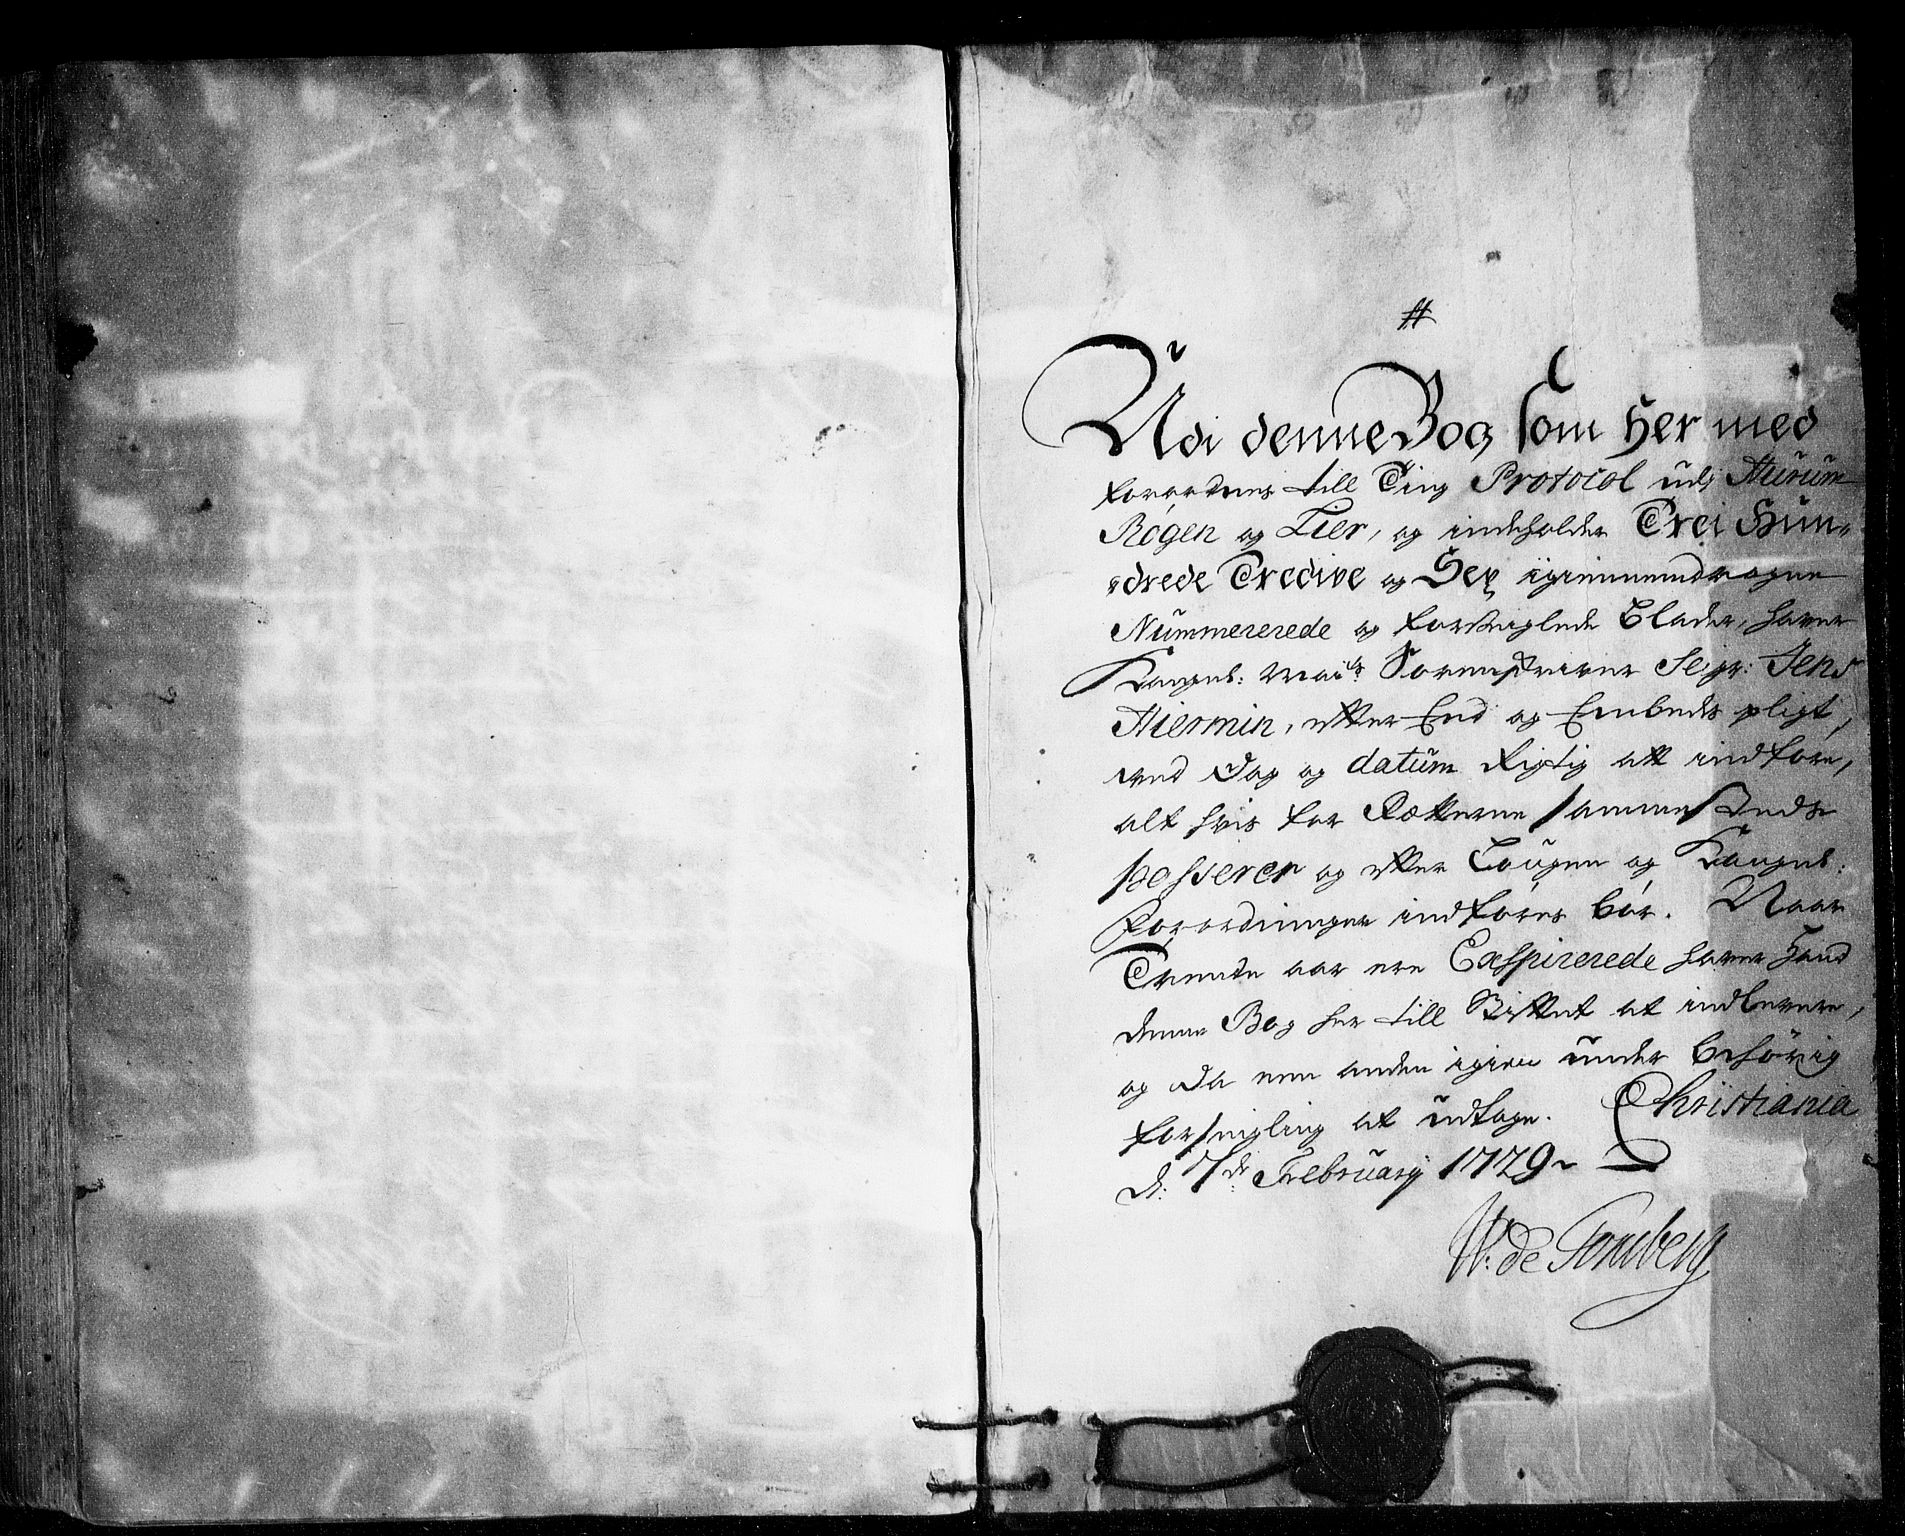 #
Udi denne Bog som her med
forordnes till Ting Protocol udj Hurum
Røgen og Lier, og indeholder Trei Hun„
„drede Tredive og Sex igiennemdragne
Nummererede og forseiglede Blader, haver
Kongel: Mai:ts Sorenskriver Seigr: Jens
Hiermin, efter Eed og Embeds pligt,
ved Dag og datum Rigtig att indføre,
alt hvis for Rætterne sammesteds
passerer og efter Lougen og Kongel:
Forordninger indføres bør. Naar
Trende aar ere Exspirerede haver hand
denne Bog her till Stiftet at indlevere,
og da een anden igien under behørig
forseigling at udtage. Christiania
d: 7de February 1729
W: de Tonsberg